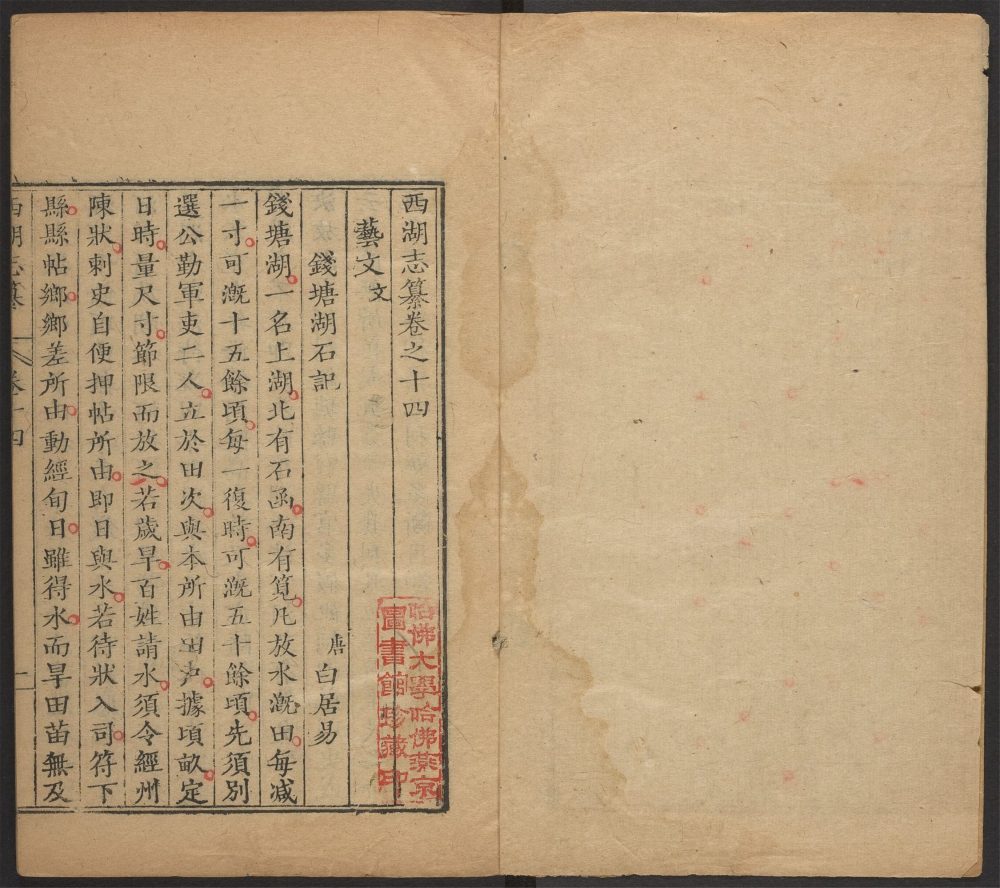 西湖志纂卷之十四
藝文 文
錢塘湖石記
唐 白居易
錢塘湖一名上湖北有石函南有筧凡放水漑田每减
一寸可漑十五餘頃每一復時可漑五十餘頃先須別
選公勤軍吏二人立於田次與本所由田戸據頃畝定
日時量尺寸節限而放之若歲旱百姓請水須令經州
陳狀刺史自便押帖所由即日與水若待狀入司符下
縣縣帖鄉鄉差所由動經旬日雖得水而旱田苗無及
西湖志纂 卷十四 一
哈佛大學哈佛燕京
圖書館珍藏印